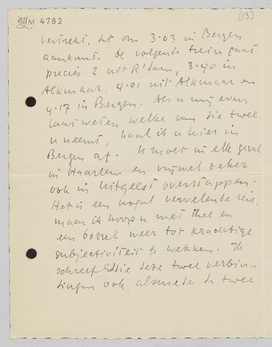 M 4782
[13]
vertrekt, dat om 3.03 in Bergen
aankomt. De volgende trein gaat
precies 2 uit R'dam, 3.40 in
Alkmaar, 4.01 uit Alkmaar en
4.17 in Bergen. Als u mij even
laat weten welke van die twee
u neemt, haal ik u hier in
Bergen af. U moet in elk geval
in Haarlem en vrijwel zeker
ook in Uitgeest overstappen.
Het is een nogal vervelende reis,
maar ik hoop u met thee en
een borrel weer tot krachtige
subjectiviteit te wekken. Ik
schreef Eddie deze twee verbin-
dingen ook, alsmede de twee